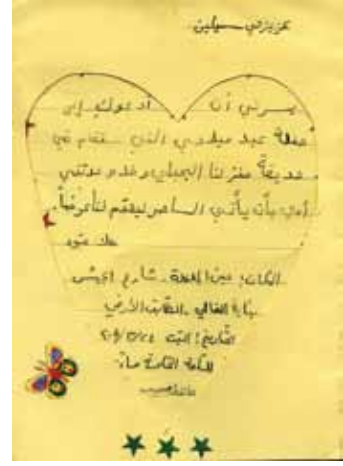 عزيزتي سيلين
يسرني أن أدعوك إلى
حفلة عيد ميلادي التي ستقام في
حديقة منزلنا الجميلة وقد وعدتني
أمي بأن يأتي الساحر ليقدم لنا عرضاً.
المكان: عين شارع
بناية الغالي الطابق الأرضي
التاريخ: السبت
الساعة الخامسة مساءً